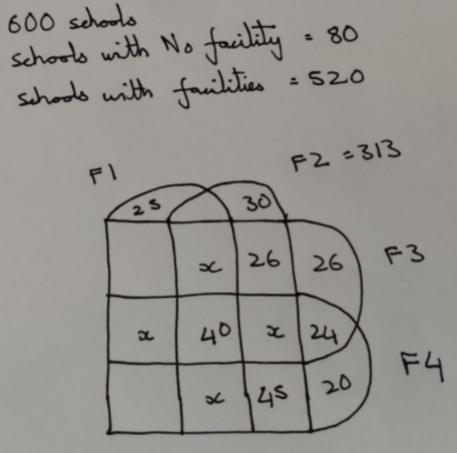 600 schools
schools with No facility = 80
schools with facilities = 520
F1
F2 = 313
25
30
x 26 26
F3
x 40 x 24
F4
x 45 20